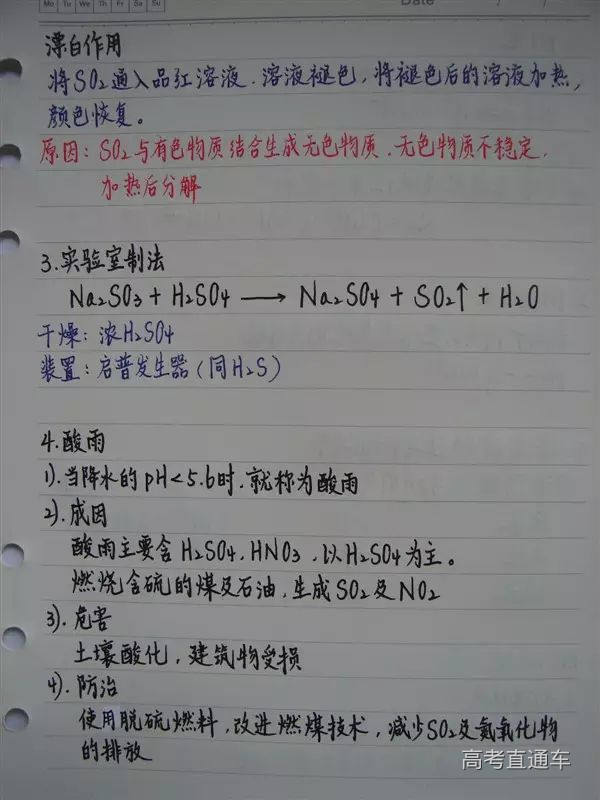 Mo Tu We Th Fr Sa Su
Date / /
漂白作用
将SO₂通入品红溶液.溶液褪色,将褪色后的溶液加热,
颜色恢复。
原因:SO₂与有色物质结合生成无色物质.无色物质不稳定.
加热后分解
3.实验室制法
Na₂SO₃+H₂SO₄ ⟶ Na₂SO₄+SO₂↑+H₂O
干燥:浓H₂SO₄
装置:启普发生器(同H₂S)
4.酸雨
1).当降水的pH<5.6时.就称为酸雨
2).成因
酸雨主要含H₂SO₄,HNO₃,以H₂SO₄为主。
燃烧含硫的煤及石油,生成SO₂及NO₂
3).危害
土壤酸化,建筑物受损
4).防治
使用脱硫燃料,改进燃煤技术,减少SO₂及氮氧化物
的排放
高考直通车